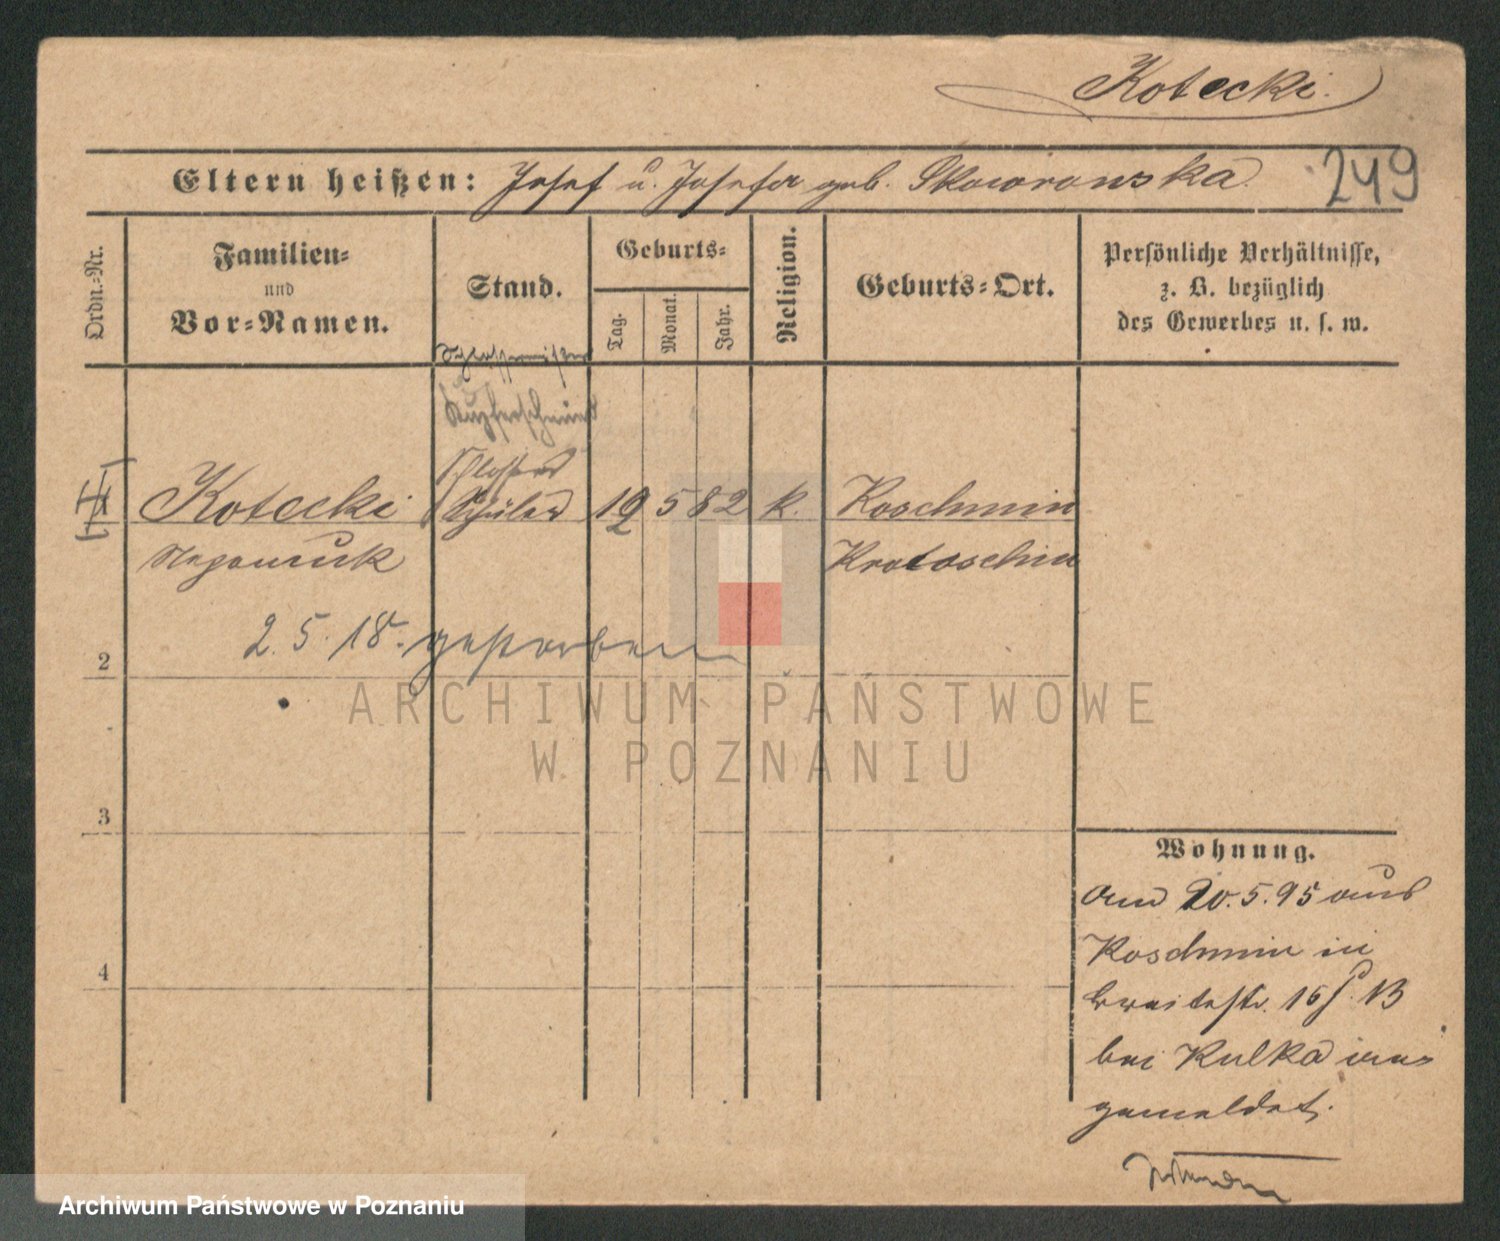 Kotecki.
Eltern heißen: Josef u. Josefa geb. Skowronska
249
Ordn.-Nr.
Familien-
und
Vor-Namen.
Stand.
Geburts-
Tag.
Monat.
Jahr.
Religion.
Geburts-Ort.
Persönliche Verhältnisse,
z. B. bezüglich
des Gewerbes u. s. w.
Schlossermeister
Kupferschmied
Schlosser
Kotecki
Schüler
12
5
82
k.
Koschmin
Nepomuk
Krotoschin
2. 5. 18. gestorben
2
3
4
ARCHIWUM PAŃSTWOWE
W POZNANIU
Wohnung.
am 20. 5. 95 aus
Koschmin in
Breitestr. 16
bei Kulka
gemeldet.
Archiwum Państwowe w Poznaniu